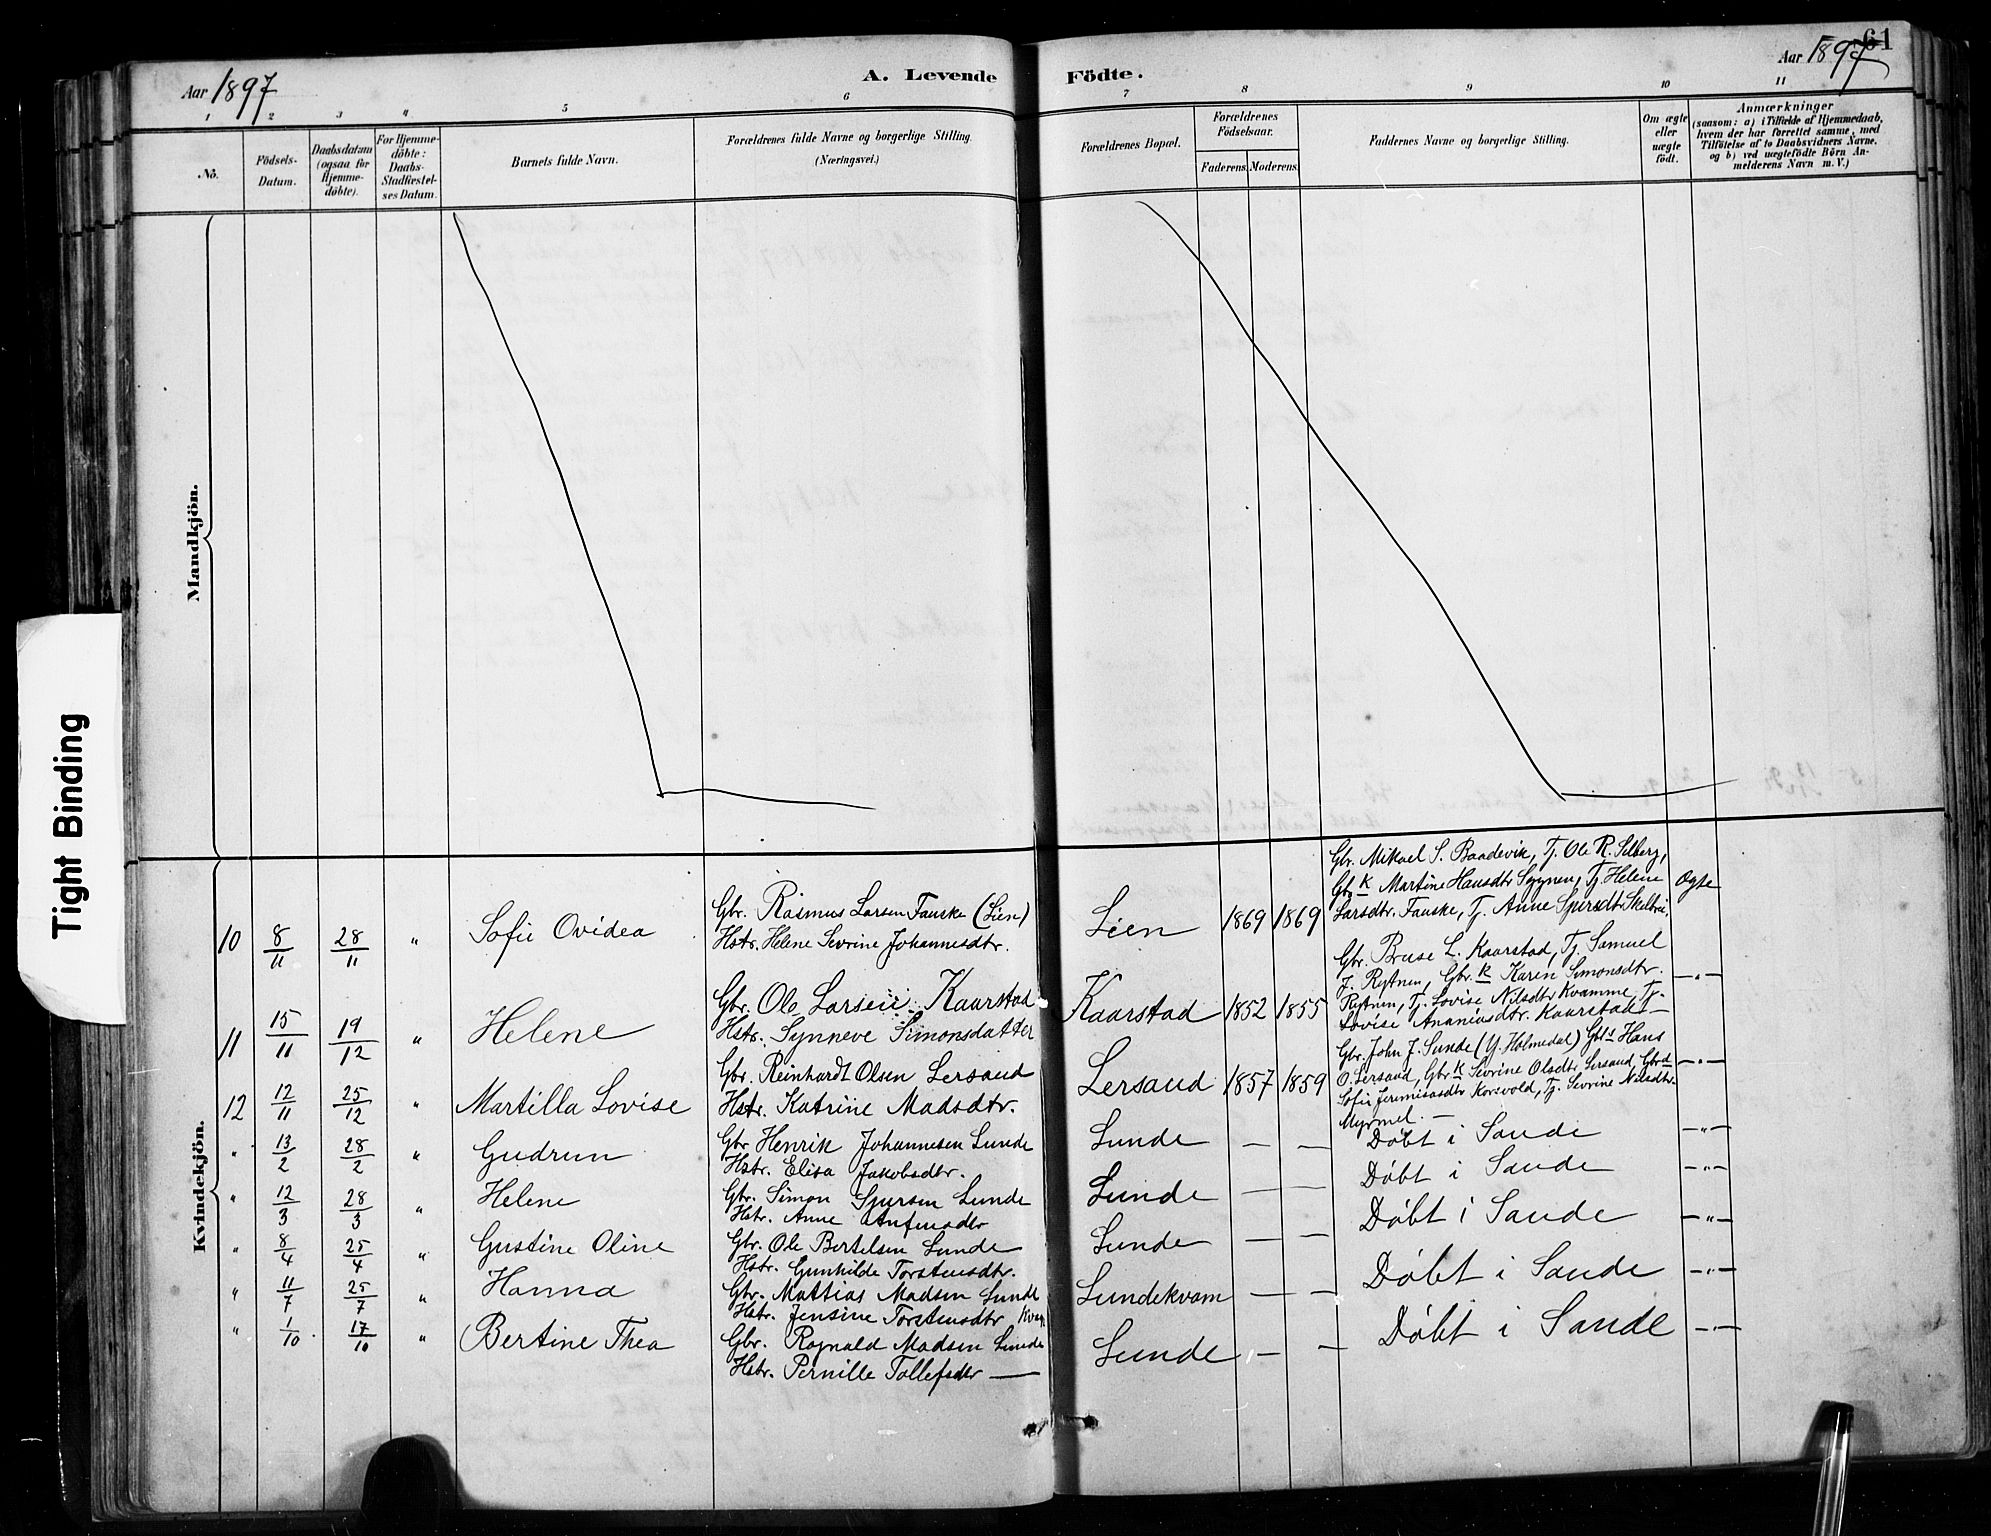 Aar 1897
A. Levende Födte.
Aar 1897
61
1 2 3 4 5 6 7 8 9 10 11
No.
Födsels-Datum.
Daabsdatum (ogsaa for Hjemme-döbte).
For Hjemme-döbte: Daabs-Stadfæstel-ses Datum.
Barnets fulde Navn.
Forældrenes fulde Navne og borgerlige Stilling.
(Næringsvei.)
Forældrenes Bopæl.
Forældrenes Födselsaar.
Faderens. Moderens.
Faddernes Navne og borgerlige Stilling.
Om ægte eller uægte födt.
Anmærkninger
(saasom: a) i Tilfælde af Hjemmedaab,
hvem der har forrettet samme, med
Tilföielse af to Daabsvidners Navne.
og b) ved uægtefödte Börn An-
melderens Navn m. V.)
Mandkjön.
Tight Binding
Kvindekjön.
10 8/11 28/11 " Sofie Ovidea
Gbr. Rasmus Larsen Fauske (Lien)
Hstr. Helene Sevrine Johannesdtr.
Lien 1869 1869
Gbr. Mikael S. Baadevik, Tj. Ole R. Selberg,
Gbr k Martine Hansdtr , Tj. Helene
Larsdtr. Fauske, Tj. Anne
Ægte
11 15/11 19/12 " Helene
Gbr. Ole Larsen Kaarstad
Hstr. Synneve Simonsdatter
Kaarstad 1852 1855
Gbr. Bruse L. Kaarstad, Tj. Samuel
J. Rytnen, Gbr. k Karen Simonsdtr.
Rytnen, Tj. Lovise Nilsdtr Kvamme, Tj.
Lovise Ananiasdtr. Kaarstad —
—"—
12 12/11 25/12 " Martilla Lovise
Gbr. Reinhardt Olsen Lersand
Hstr. Katrine Madsdtr.
Lersand 1857 1859
Gbr. John J. Sunde (Y. Holmedal) Hans
O. Lersand, Gbr k Sevrine Olsdtr Lersand,
Sofie Jeremiasdtr Korsvold, Tj. Sevrine Nilsdtr
Myrmel. —
—"—
" 13/2 28/2 " Gudrun
Gbr Henrik Johannesen Lunde
Hstr. Elisa Jakobsdtr.
Lunde — — Døbt i Sande —"—
" 12/3 28/3 " Helene
Gbr. Simon Sjursen Lunde
Hstr. Anne Anfinsdtr
Lunde — — Døbt i Sande —"—
" 8/4 25/4 " Gustine Oline
Gbr. Ole Bertelsen Lunde
Hstr. Gunhilde Torstensdtr.
Lunde — — Døbt i Sande —"—
" 11/7 25/7 " Hanna
Gbr. Mattias Madsen Lunde
Hstr. Jensine Torstensdtr Kvam
Lundekvam — — Døbt i Sande —"—
" 1/10 17/10 " Bertine Thea
Gbr. Ragnald Madsen Lunde
Hstr. Pernille Tollefsdtr —
Lunde — — Døbt i Sande —"—